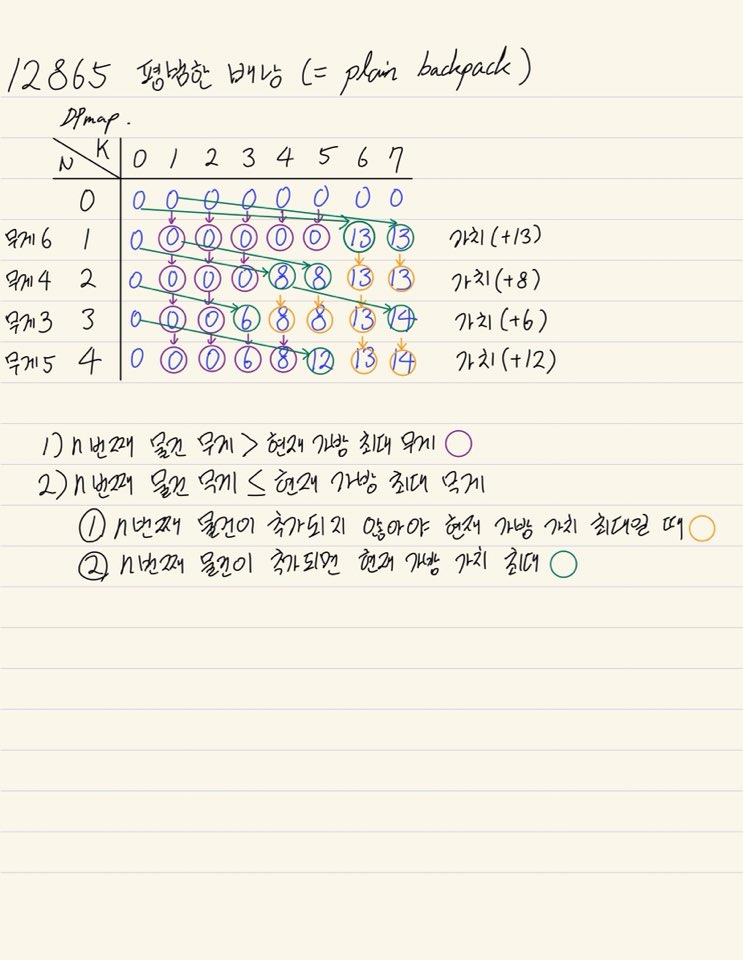 12865 평범한 배낭 (= plain backpack)
DPmap.
N K 0 1 2 3 4 5 6 7
0 0 0 0 0 0 0 0 0
무게 6 1 0 0 0 0 0 0 13 13 가치(+13)
무게 4 2 0 0 0 0 8 8 13 13 가치(+8)
무게 3 3 0 0 0 6 8 8 13 14 가치(+6)
무게 5 4 0 0 0 6 8 12 13 14 가치(+12)
1) n번째 물건 무게 > 현재 가방 최대 무게
2) n번째 물건 무게 ≤ 현재 가방 최대 무게
① n번째 물건이 추가되지 않아야 현재 가방 가치 최대일 때
② n번째 물건이 추가되면 현재 가방 가치 최대